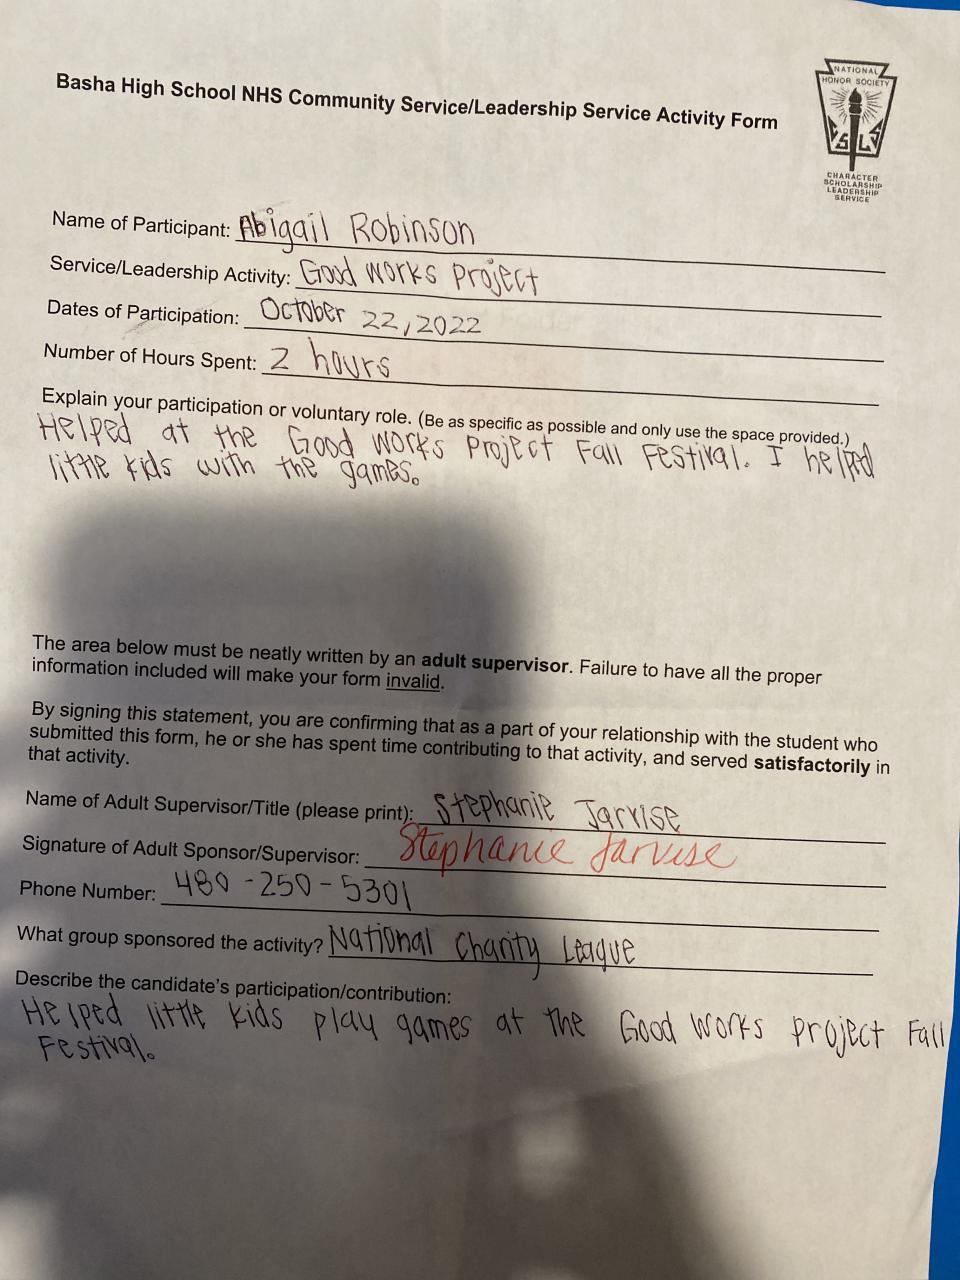 Basha High School NHS Community Service/Leadership Service Activity Form
NATIONAL
HONOR SOCIETY
S L S
CHARACTER
SCHOLARSHIP
LEADERSHIP
SERVICE
Name of Participant: Abigail Robinson
Service/Leadership Activity: Good Works Project
Dates of Participation: October 22, 2022
Number of Hours Spent: 2 hours
Explain your participation or voluntary role. (Be as specific as possible and only use the space provided.)
Helped at the Good Works Project Fall Festival. I helped
little kids with the games.
The area below must be neatly written by an adult supervisor. Failure to have all the proper
information included will make your form invalid.
By signing this statement, you are confirming that as a part of your relationship with the student who
submitted this form, he or she has spent time contributing to that activity, and served satisfactorily in
that activity.
Name of Adult Supervisor/Title (please print): Stephanie Jarvise
Signature of Adult Sponsor/Supervisor: Stephanie Jarvise
Phone Number: 480-250-5301
What group sponsored the activity? National Charity League
Describe the candidate's participation/contribution:
Helped little kids play games at the Good Works Project Fall
Festival.